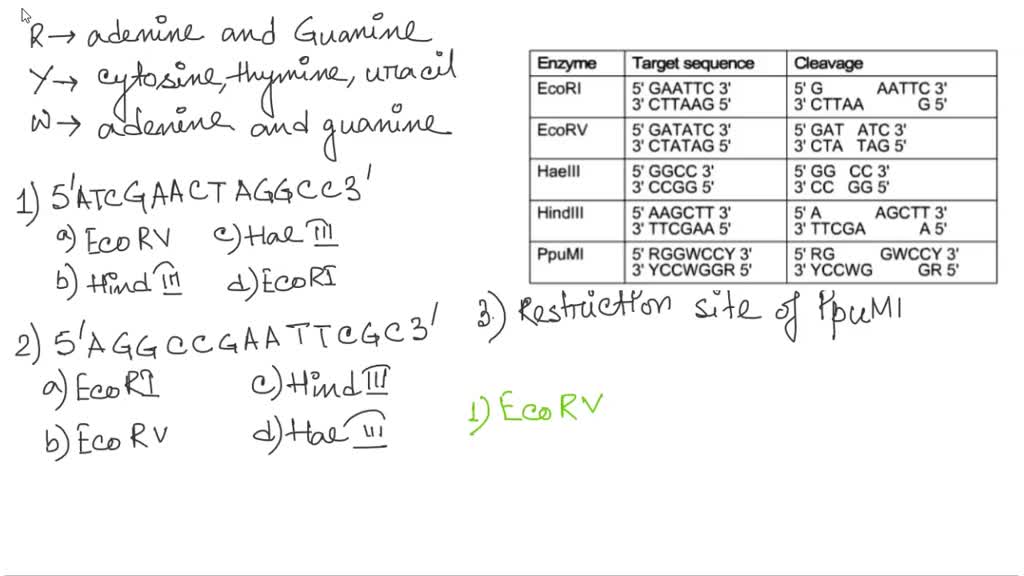 R → adenine and Guanine
Y → cytosine, thymine, uracil
W → adenine and guanine
1) 5'ATCGAACTAGGCC3'
a) EcoRV c) Hae III
b) Hind III d) EcoRI
2) 5'AGGCCGAATTCGC3'
a) EcoRI c) Hind III
b) EcoRV d) Hae III
Enzyme Target sequence Cleavage
EcoRI 5' GAATTC 3' 5' G AATTC 3'
3' CTTAAG 5' 3' CTTAA G 5'
EcoRV 5' GATATC 3' 5' GAT ATC 3'
3' CTATAG 5' 3' CTA TAG 5'
HaeIII 5' GGCC 3' 5' GG CC 3'
3' CCGG 5' 3' CC GG 5'
HindIII 5' AAGCTT 3' 5' A AGCTT 3'
3' TTCGAA 5' 3' TTCGA A 5'
PpuMI 5' RGGWCCY 3' 5' RG GWCCY 3'
3' YCCWGGR 5' 3' YCCWG GR 5'
3.) Restriction site of PpuMI
1) EcoRV